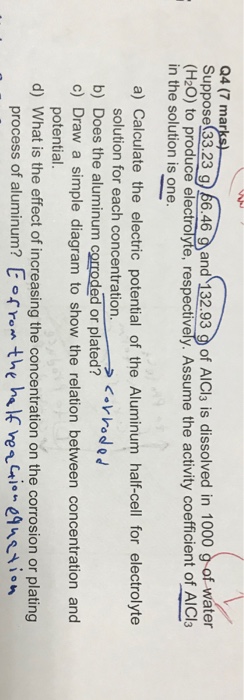 Q4 (7 marks)
Suppose 33.23 g, 66.46 g, and 132.93 g of AlCl3 is dissolved in 1000 g of water
(H2O) to produce electrolyte, respectively. Assume the activity coefficient of AlCl3
in the solution is one.
a) Calculate the electric potential of the Aluminum half-cell for electrolyte
solution for each concentration.
b) Does the aluminum corroded or plated? → corroded
c) Draw a simple diagram to show the relation between concentration and
potential.
d) What is the effect of increasing the concentration on the corrosion or plating
process of aluminum? E of from the half reaction equation